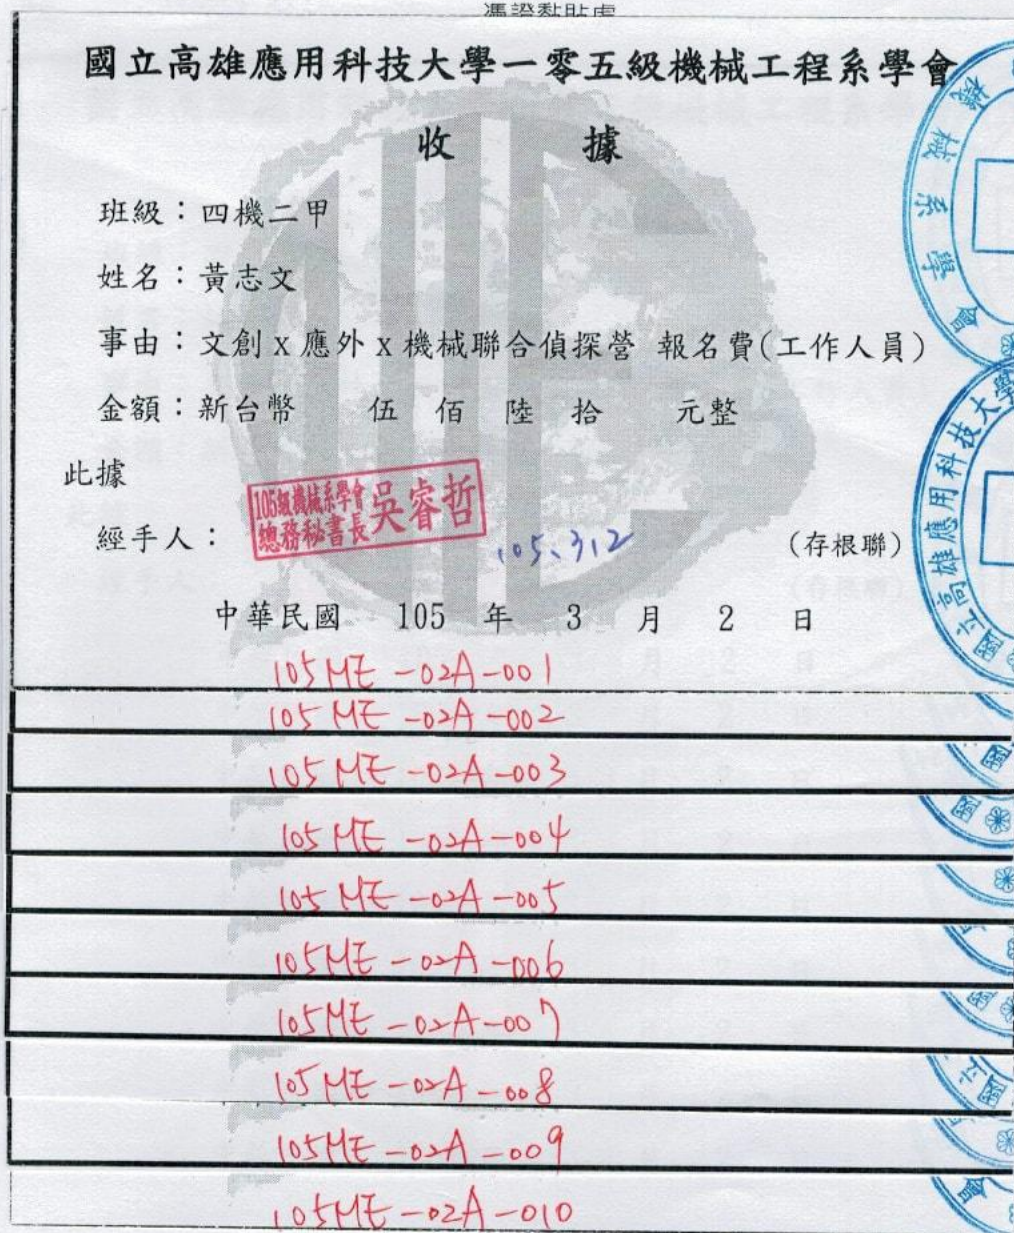 憑證黏貼處
國立高雄應用科技大學一零五級機械工程系學會
收 據
班級：四機二甲
姓名：黃志文
事由：文創 x 應外 x 機械聯合偵探營 報名費(工作人員)
金額：新台幣 伍 佰 陸 拾 元整
此據
經手人：
105級機械系學會
總務秘書長 吳睿哲
105、3、2
(存根聯)
中華民國 105 年 3 月 2 日
105ME-02A-001
105ME-02A-002
105ME-02A-003
105ME-02A-004
105ME-02A-005
105ME-02A-006
105ME-02A-007
105ME-02A-008
105ME-02A-009
105ME-02A-010
機械系學會
國立高雄應用科技大學